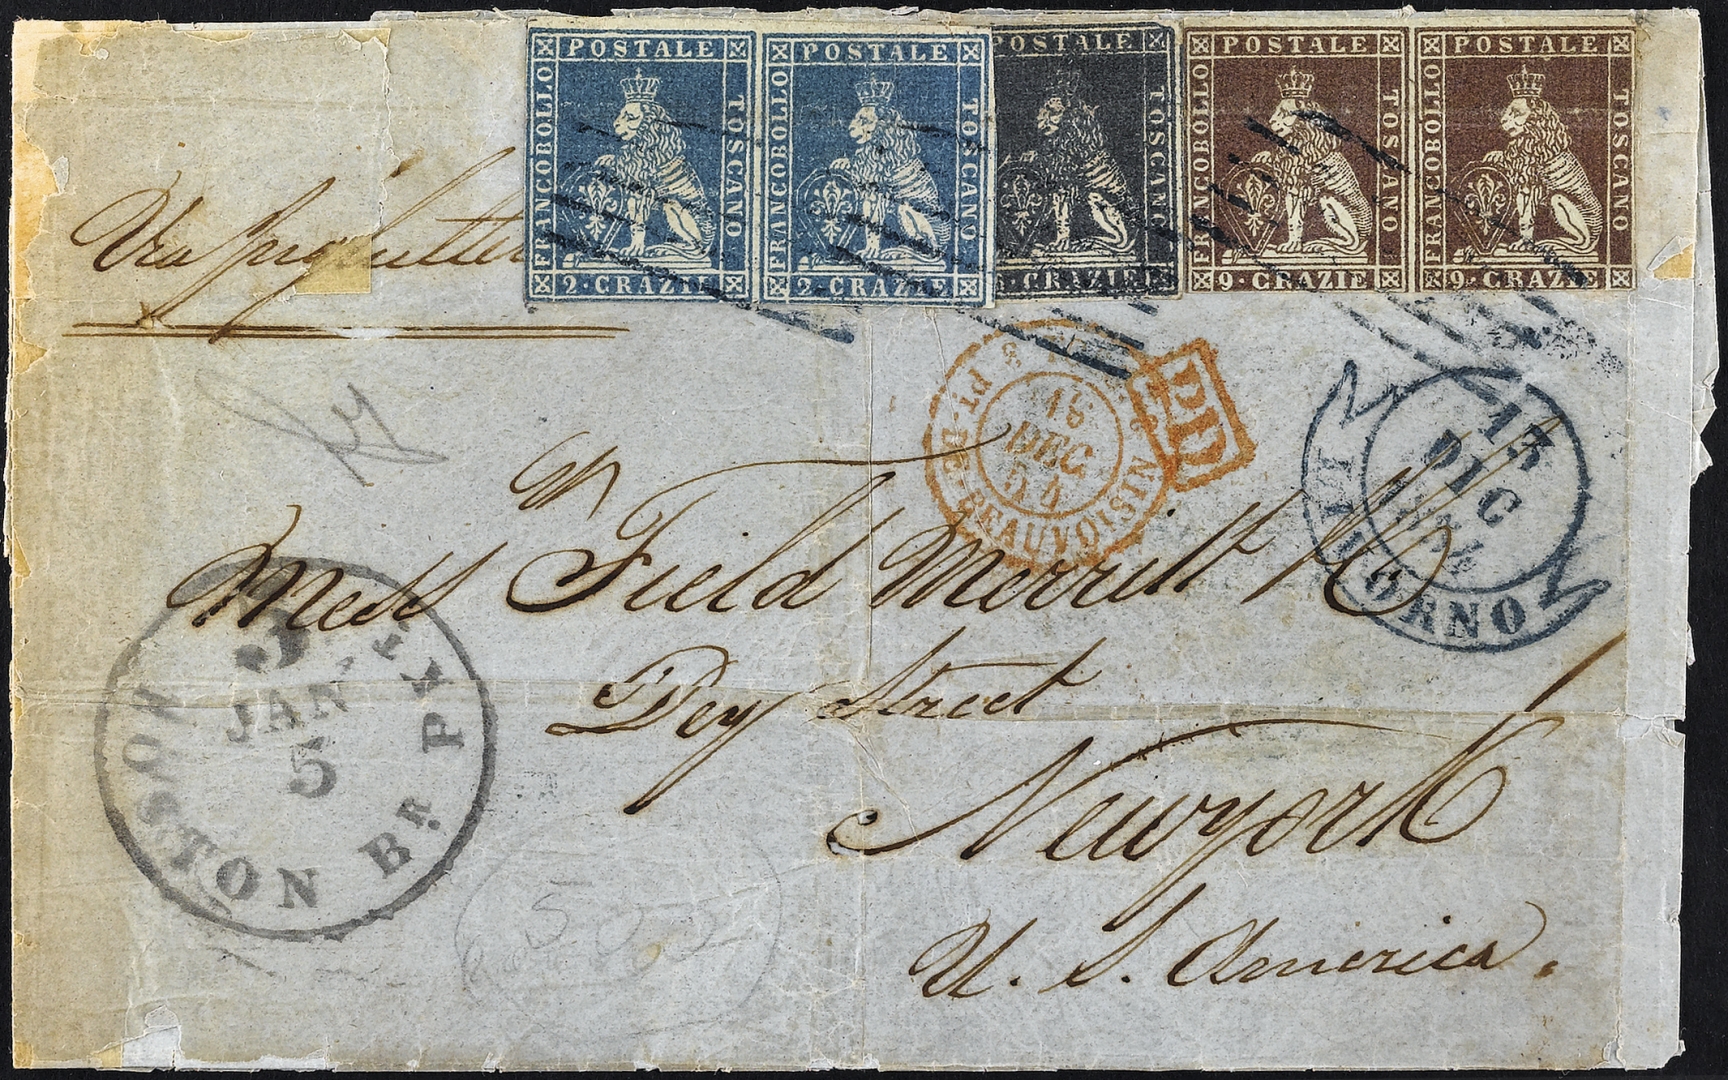 POSTALE POSTALE POSTALE POSTALE POSTALE
FRANCOBOLLO TOSCANO FRANCOBOLLO TOSCANO TOSCANO FRANCOBOLLO TOSCANO FRANCOBOLLO TOSCANO
2·CRAZIE 2·CRAZIE CRAZIE 9·CRAZIE 9·CRAZIE
Via
PT. DE. BEAUVOISIN
18
DEC
54
PD
LIVORNO
13
DIC
1854
Mess Field Merrill & Co
Dey Street
Newyork
U. S. America.
BOSTON Br. PKT
JAN
5
500